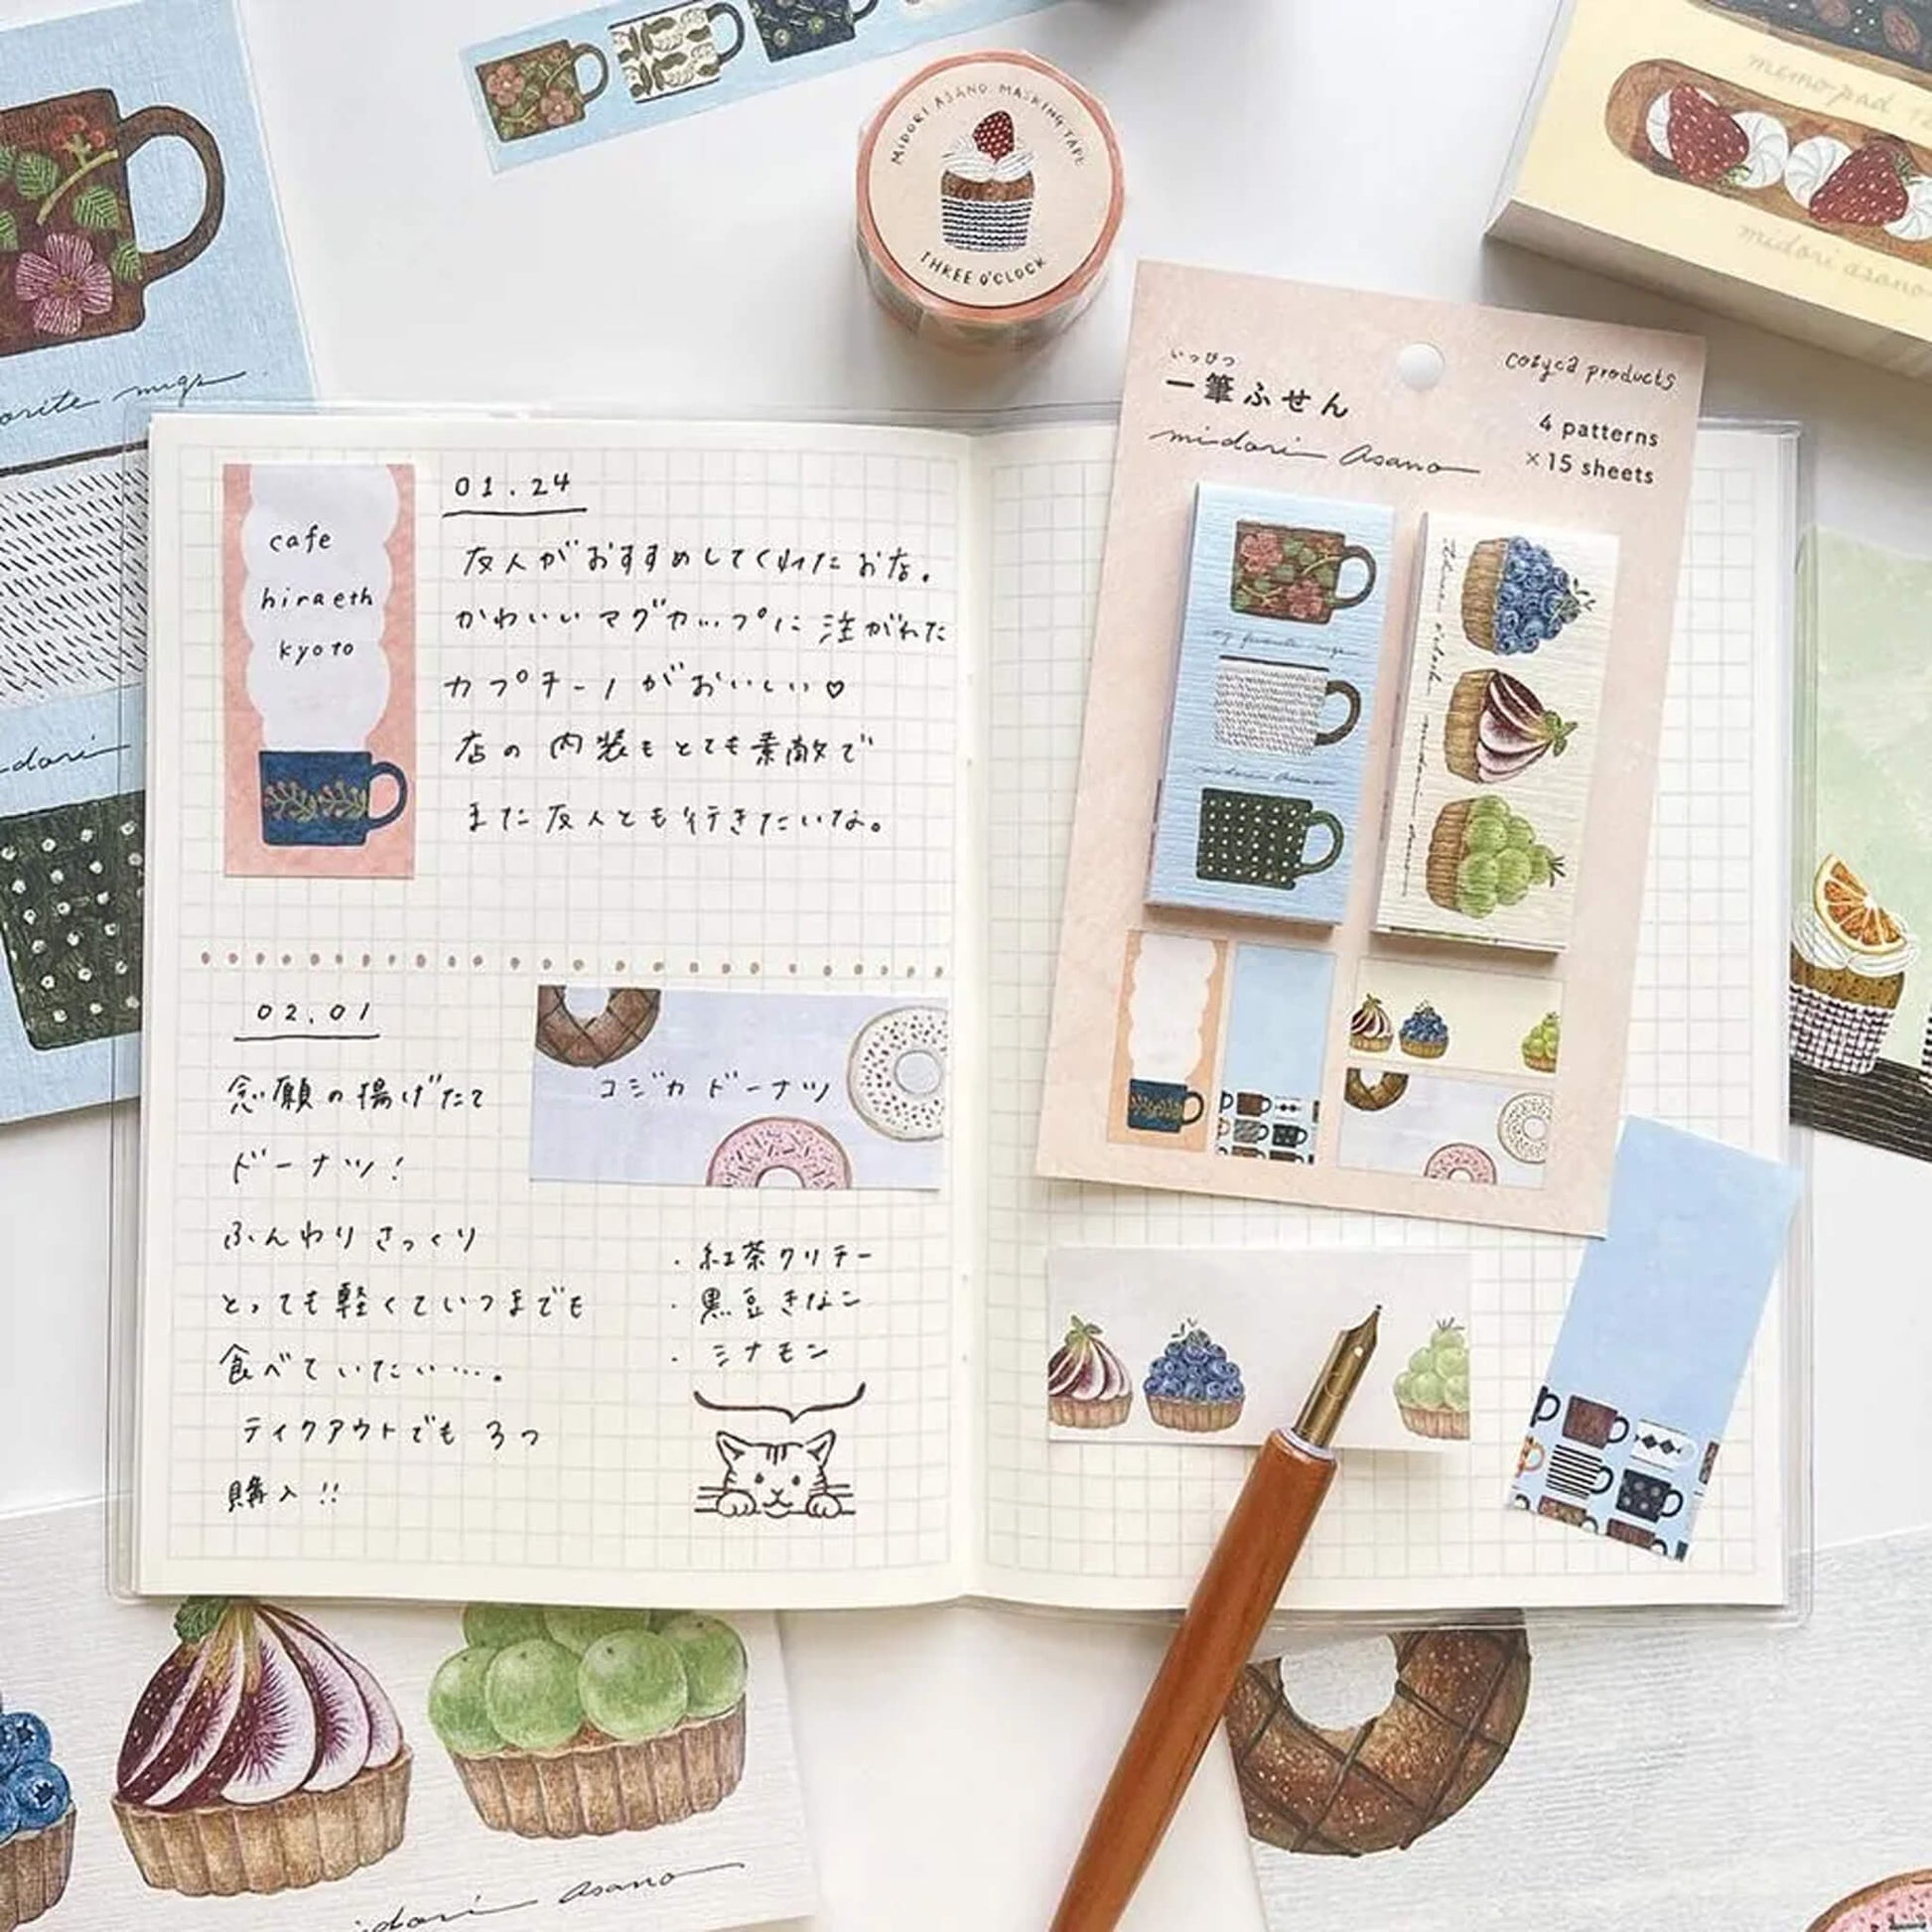 MIDORI ASANO MASKING TAPE
THREE O'CLOCK
memo pad
midori asano
mugs
いっぴつ
一筆ふせん
midori asano
cozyca products
4 patterns
×15 sheets
my favorite mugs
midori asano
cafe
hiraeth
kyoto
01.24
友人がおすすめしてくれたお店。
かわいいマグカップに注がれた
カプチーノがおいしい♡
店の内装もとても素敵で
また友人とも行きたいな。
02.01
念願の揚げたて
ドーナツ!
ふんわりさっくり
とっても軽くていつまでも
食べていたい…。
ティクアウトでも3つ
購入!!
コジカドーナツ
・紅茶クリチー
・黒豆きなこ
・シナモン
asano